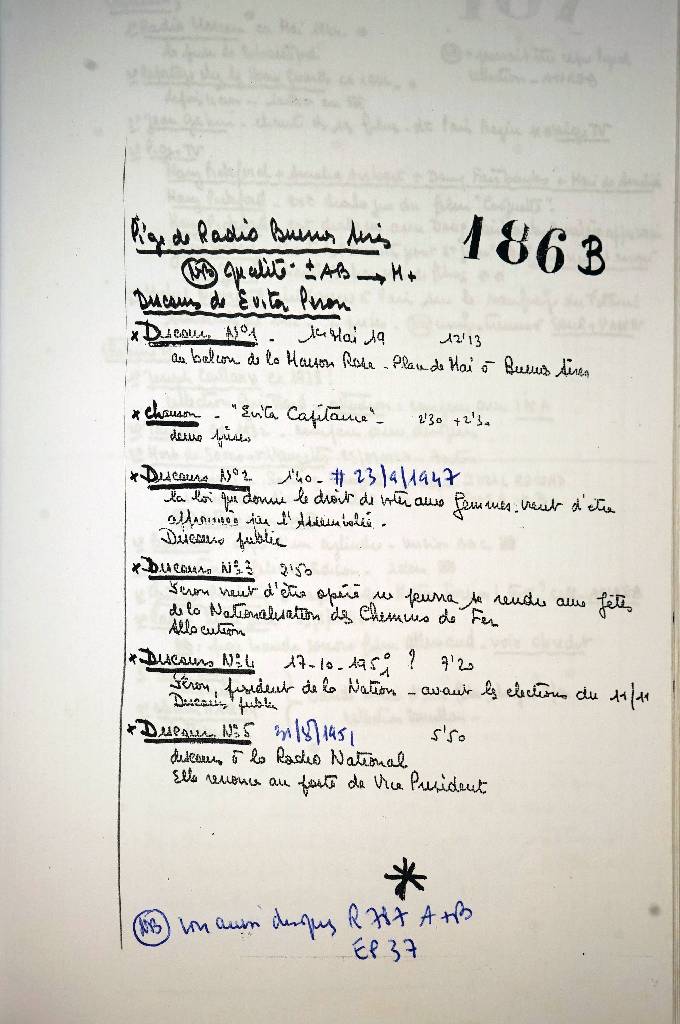 Pige de Radio Buenos Aires
1863 B
NB qualité ± AB → H+
Discours de Evita Peron
x Discours N°1 - 1er Mai 19 12'13
au balcon de la Maison Rose - Place de Mai à Buenos Aires
x chanson - "Evita Capitana" - 2'30 + 2'30
deux prises
x Discours N°2 1'40 - # 23/9/1947
la loi qui donne le droit de voter aux femmes vient d'être
approuvée par l'Assemblée.
Discours public
x Discours N°3 2'50
Peron vient d'être opéré ne pourra se rendre aux fêtes
de la Nationalisation des Chemins de Fer
Allocution
x Discours N°4 17-10-1950 1 ? 7'20
Peron, président de la Nation - avant les elections du 11/11
Discours public
x Discours N°5 31/8/1951 5'50
discours à la Radio National
Elle renonce au poste de Vice President
NB voir aussi disques R 787 A+B
EP 37